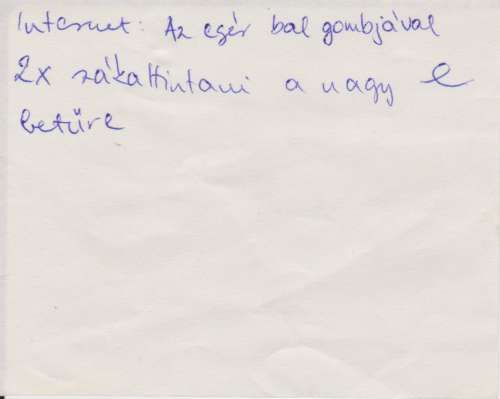 Internet: Az egér bal gombjával
2x rákattintani a nagy e
betűre